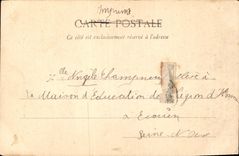 Imprimé
CARTE POSTALE
Ce côté est exclusivement réservé à l'adresse
Mlle Champenois élève à
La Maison d'Education de la Légion d'Honneur
à Ecouen
Seine et Oise